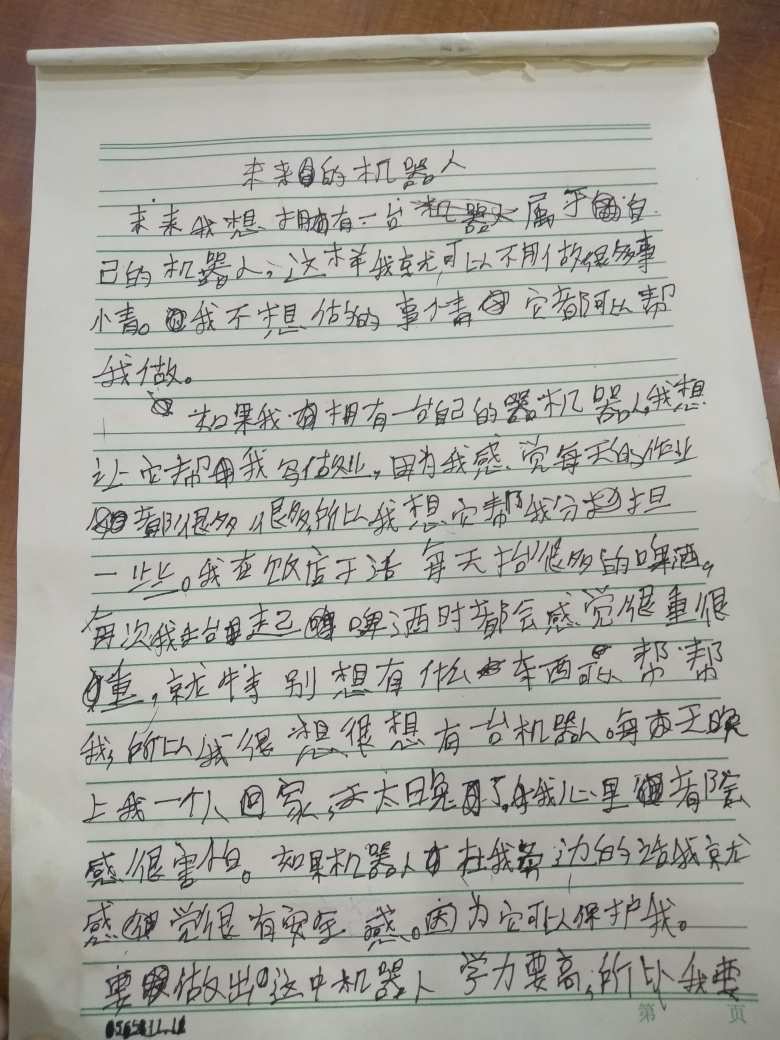 未来的机器人
未来我想拥有一台属于自
己的机器人,这样我就可以不用做很多事
情。我不想做的事情它都可以帮
我做。
如果我拥有一台自己的器机器人,我想
让它帮我写做业,因为我感觉每天的作业
都很多很多,所以我想它帮我分担
一些。我在饭店干活每天抬很多的啤酒。
每次我抬起啤酒时都会感觉很重很
重,就特别想有什么东西可以帮帮
我,所以我很想很想有一台机器人。每天晚
上我一个人回家,天太晚了,我心里都会
感很害怕。如果机器人在我边的话我就
感觉很有安全感。因为它可以保护我。
要做出这中机器人学力要高,所以我要
第 页